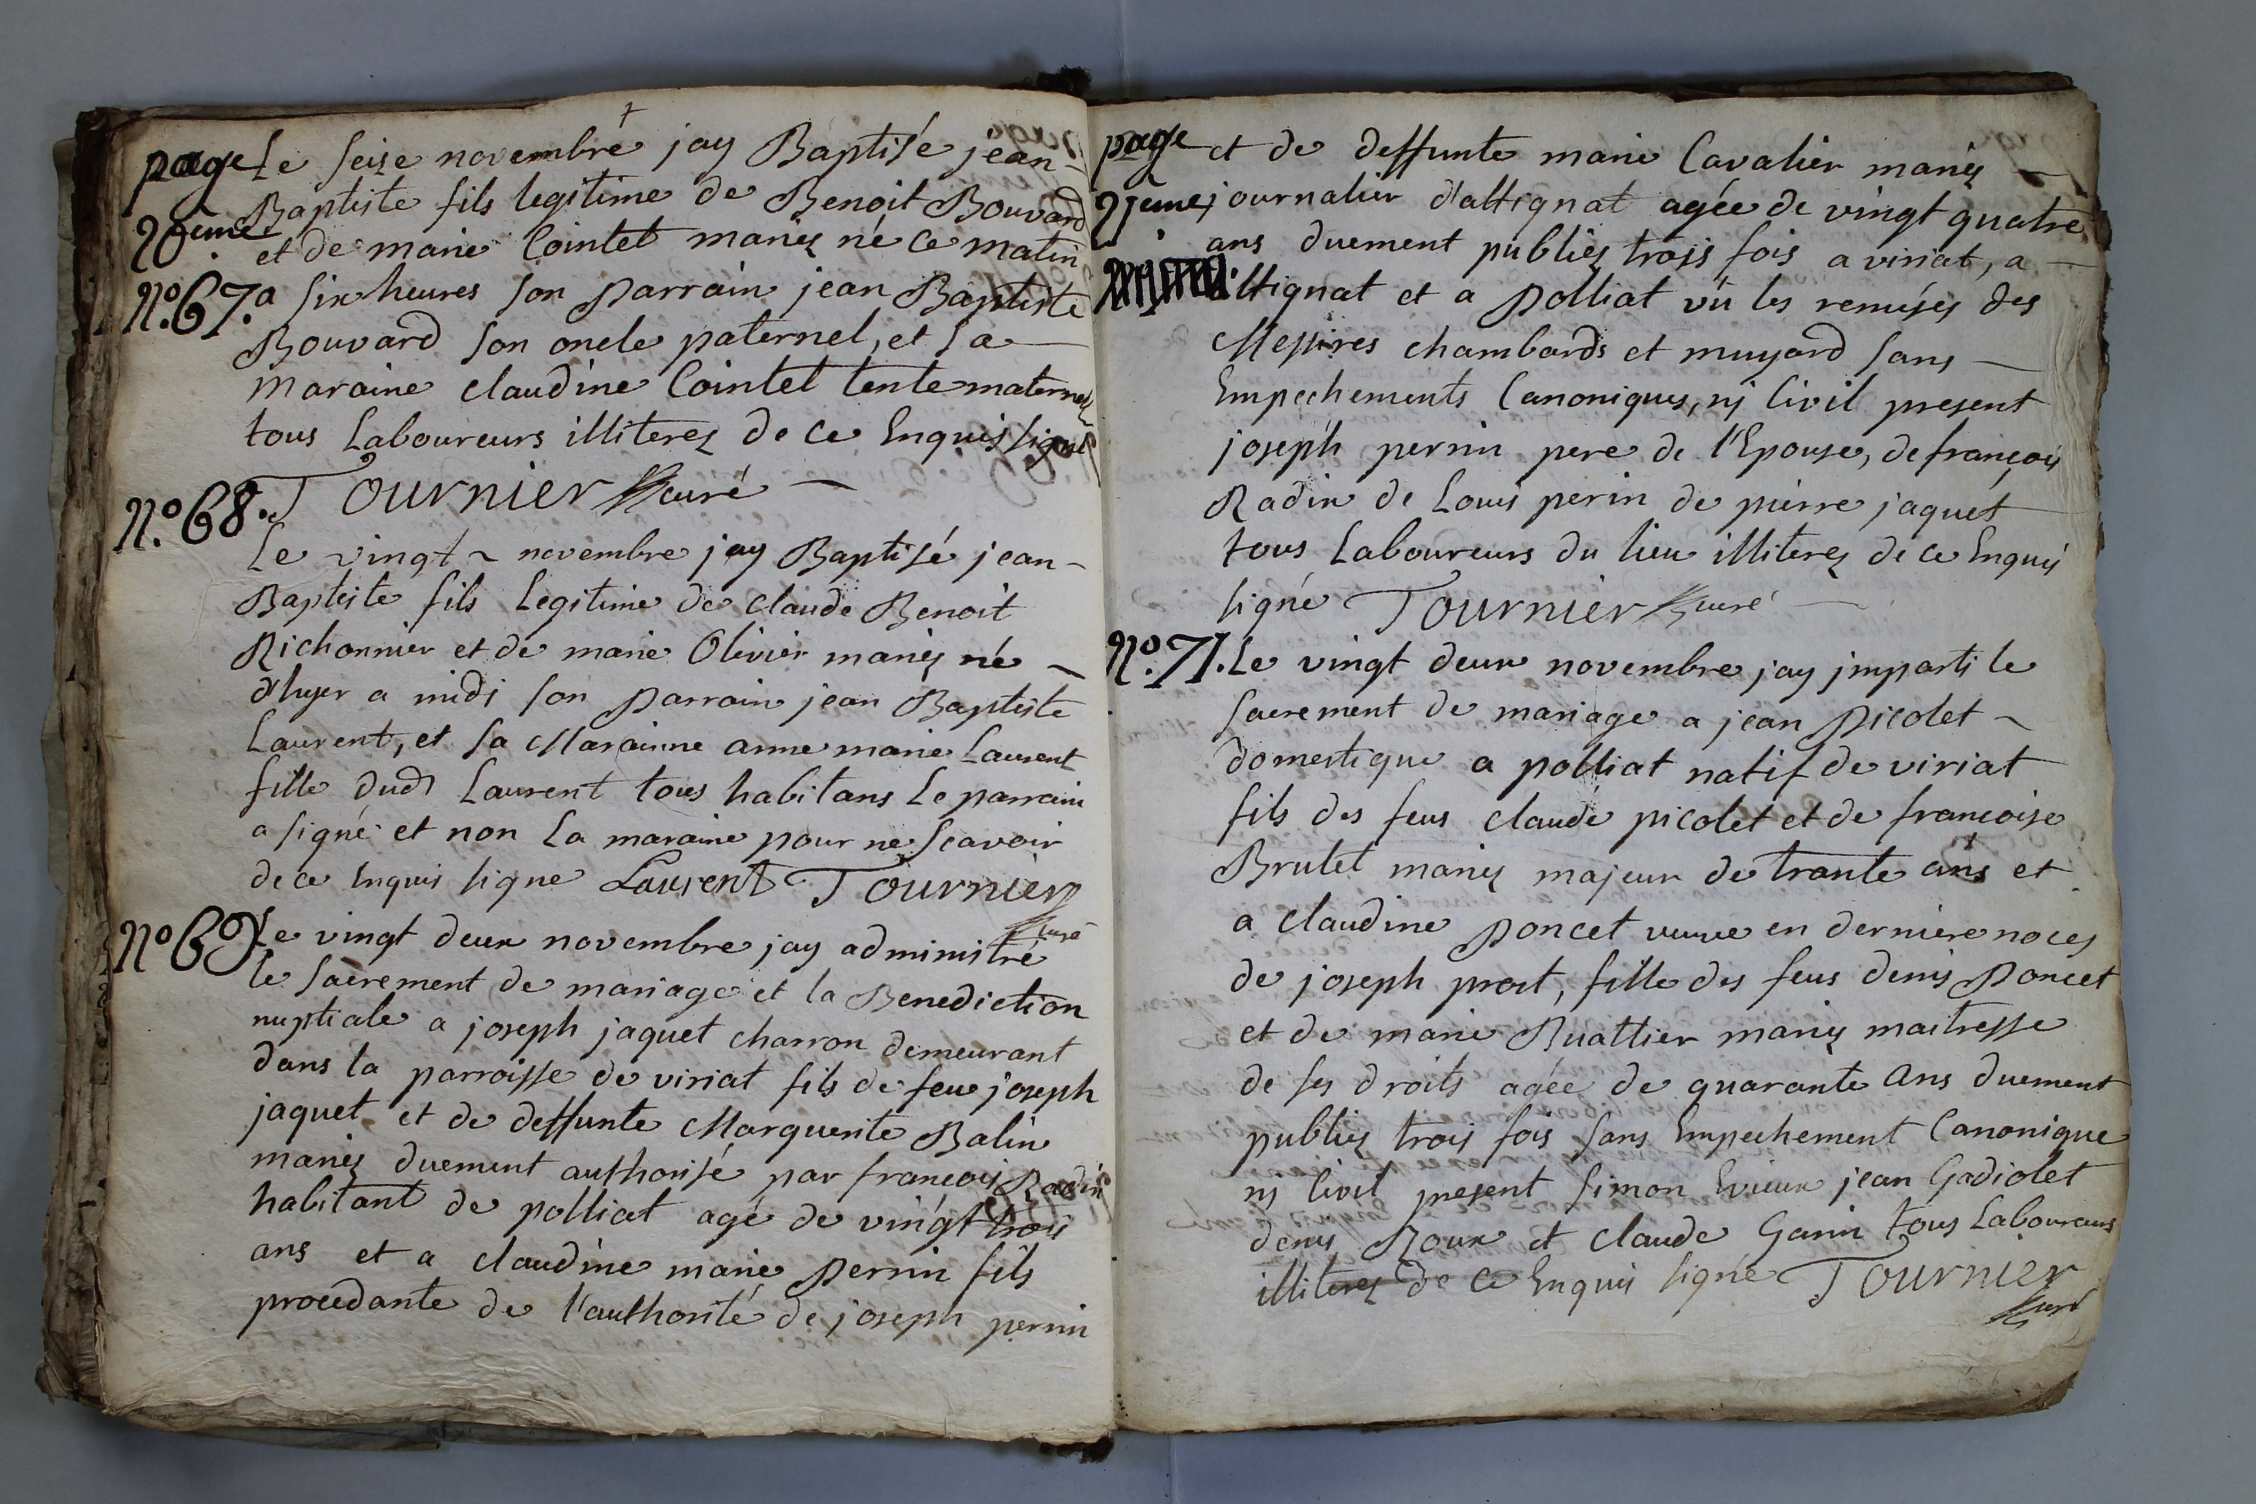 page Le seize novembre jay Baptisé jean
20eme Baptiste fils legitime de Benoit Bouvard
et de marie Cointet mariez né ce matin
No. 67. a six heures son parrain jean Baptiste
Bouvard son oncle paternel, et sa
maraine claudine Cointet tente maternel
tous Laboureurs illiterez de ce Enquis signé
Tournier curé
No. 68.
Le vingt novembre jay Baptisé jean
Baptiste fils Legitime de Claude Benoit
Richonnier et de marie Olivier mariez né
d'hyer a midi son parrain jean Baptiste
Laurent, et sa Marainne anne marie Laurent
fille dud Laurent tous habitans Le parrain
a signé et non La maraine pour ne scavoir
de ce Enquis signe Laurent Tournier
curé
No 69 Le vingt deux novembre jay adminitré
le sacrement de mariage et la Benediction
nuptiale a joseph jaquet charron demeurant
dans la parroisse de viriat fils de feu joseph
jaquet et de deffunte Marguerite Balin
mariez duement authorisé par francois Radin
habitant de polliat agé de vingt trois
ans et a claudine marie perrin fils
procedante de l'authorité de joseph perrin
page et de deffunte marie Cavalier mariez
21eme journalier d'attignat agée de vingt quatre
ans duement publiez trois fois a viriat, a
attignat et a polliat vu les remises des
Messires chambards et muyard sans
Empechements Canoniques, nj Civil present
joseph perrin pere de l'Epouse, de francois
Radin de Louis perin de pierre jaquet
tous Laboureurs du lieu illiterez de ce Enquis
signé Tournier curé
No. 71. Le vingt deux novembre jay jmparti le
sacrement de mariage a jean picolet
domestique a polliat natif de viriat
fils des feus claude picolet et de francoise
Brutet mariez majeur de trante ans et
a claudine poncet veuve en derniere noces
de joseph prost, fille des feus denis poncet
et de marie Buattier mariez maitresse
de ses droits agée de quarante ans duement
publiez trois fois sans Empechement Canonique
nj Civil present simon Evieux jean Gadiolet
denis Roux et claude Garin tous Laboureurs
illiterez de ce Enquis signé Tournier
curé